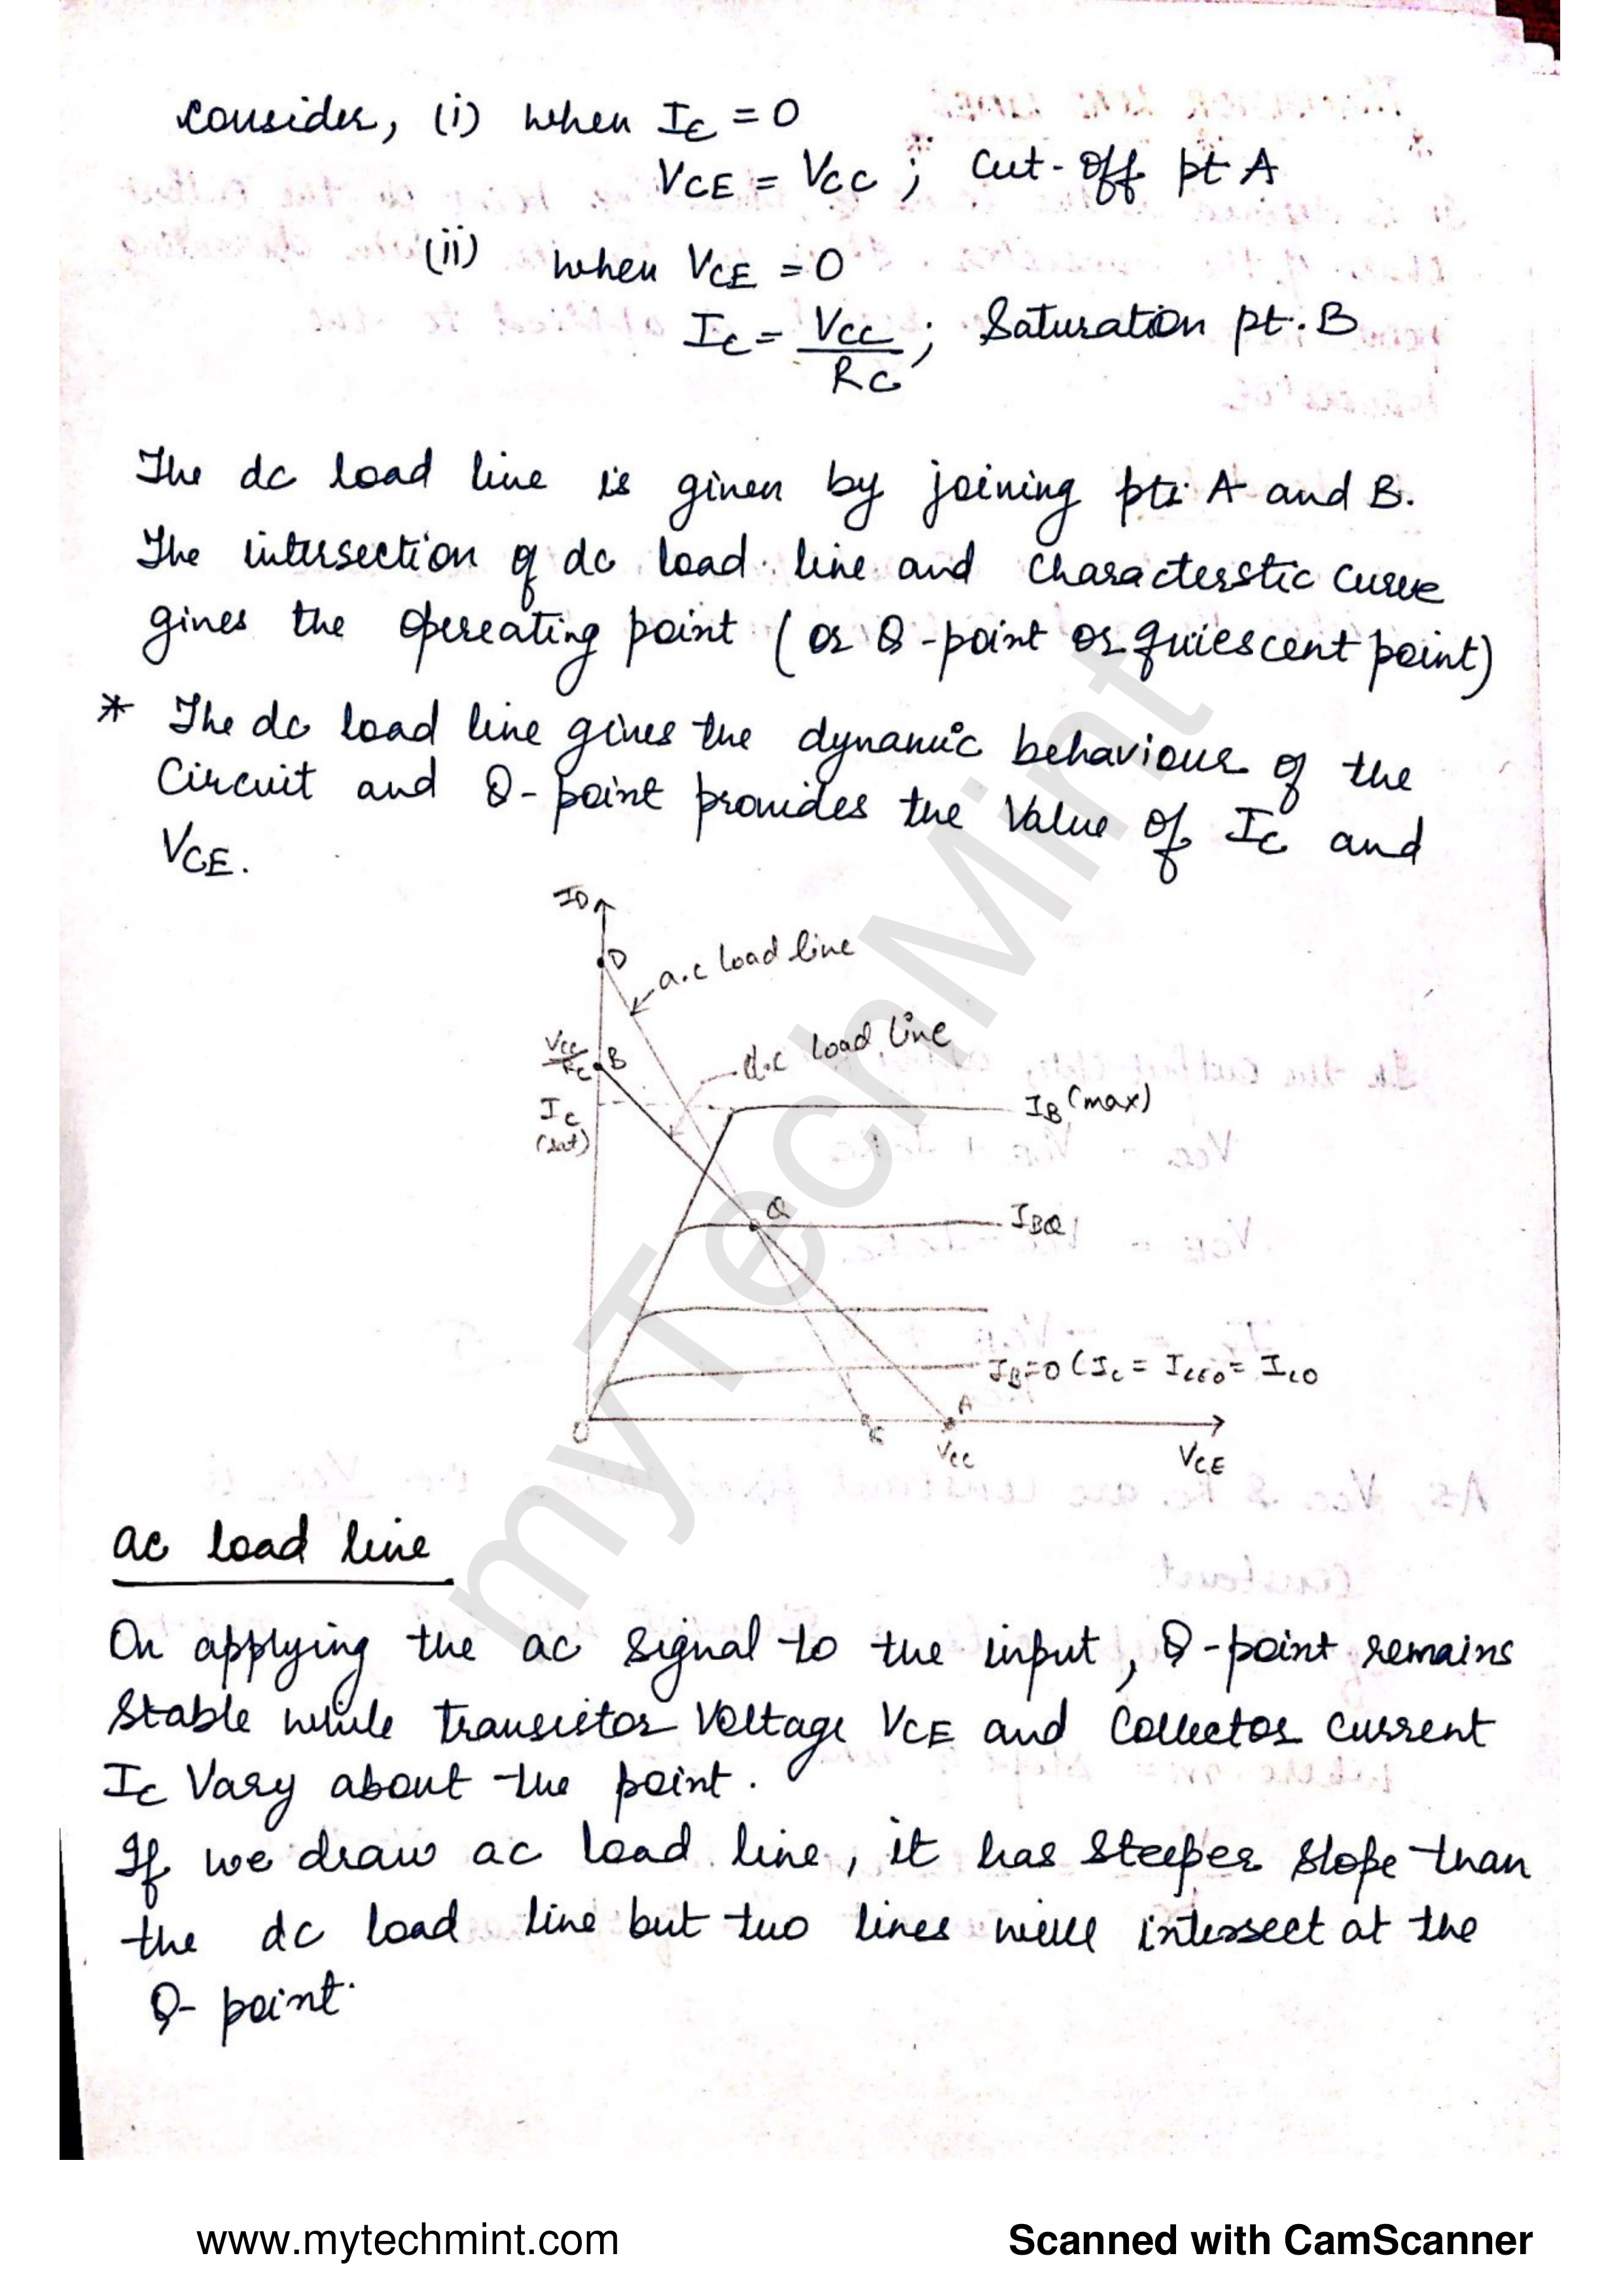 Consider, (i) when IC = 0
VCE = VCC ; Cut-Off pt A
(ii) when VCE = 0
IC = VCC / RC ; Saturation pt. B
The dc load line is given by joining pts A and B.
The intersection of dc load line and Characterstic Curve
gives the Opereating point (or Q-point or quiescent point)
* The dc load line gives the dynamic behaviour of the
Circuit and Q-point provides the Value of IC and
VCE.
ID
D
a.c load line
VCC/RC B
d.c load line
IC
(sat)
IB (max)
Q
IBQ
IB=0 (IC = ICEO = ICO
A
O
VCC
VCE
ac load line
On applying the ac Signal to the input, Q-point remains
Stable while Transistor Voltage VCE and Collector Current
IC Vary about the point.
If we draw ac load line, it has Steeper Slope than
the dc load line but two lines will intersect at the
Q- point.
myTechMint
www.mytechmint.com
Scanned with CamScanner